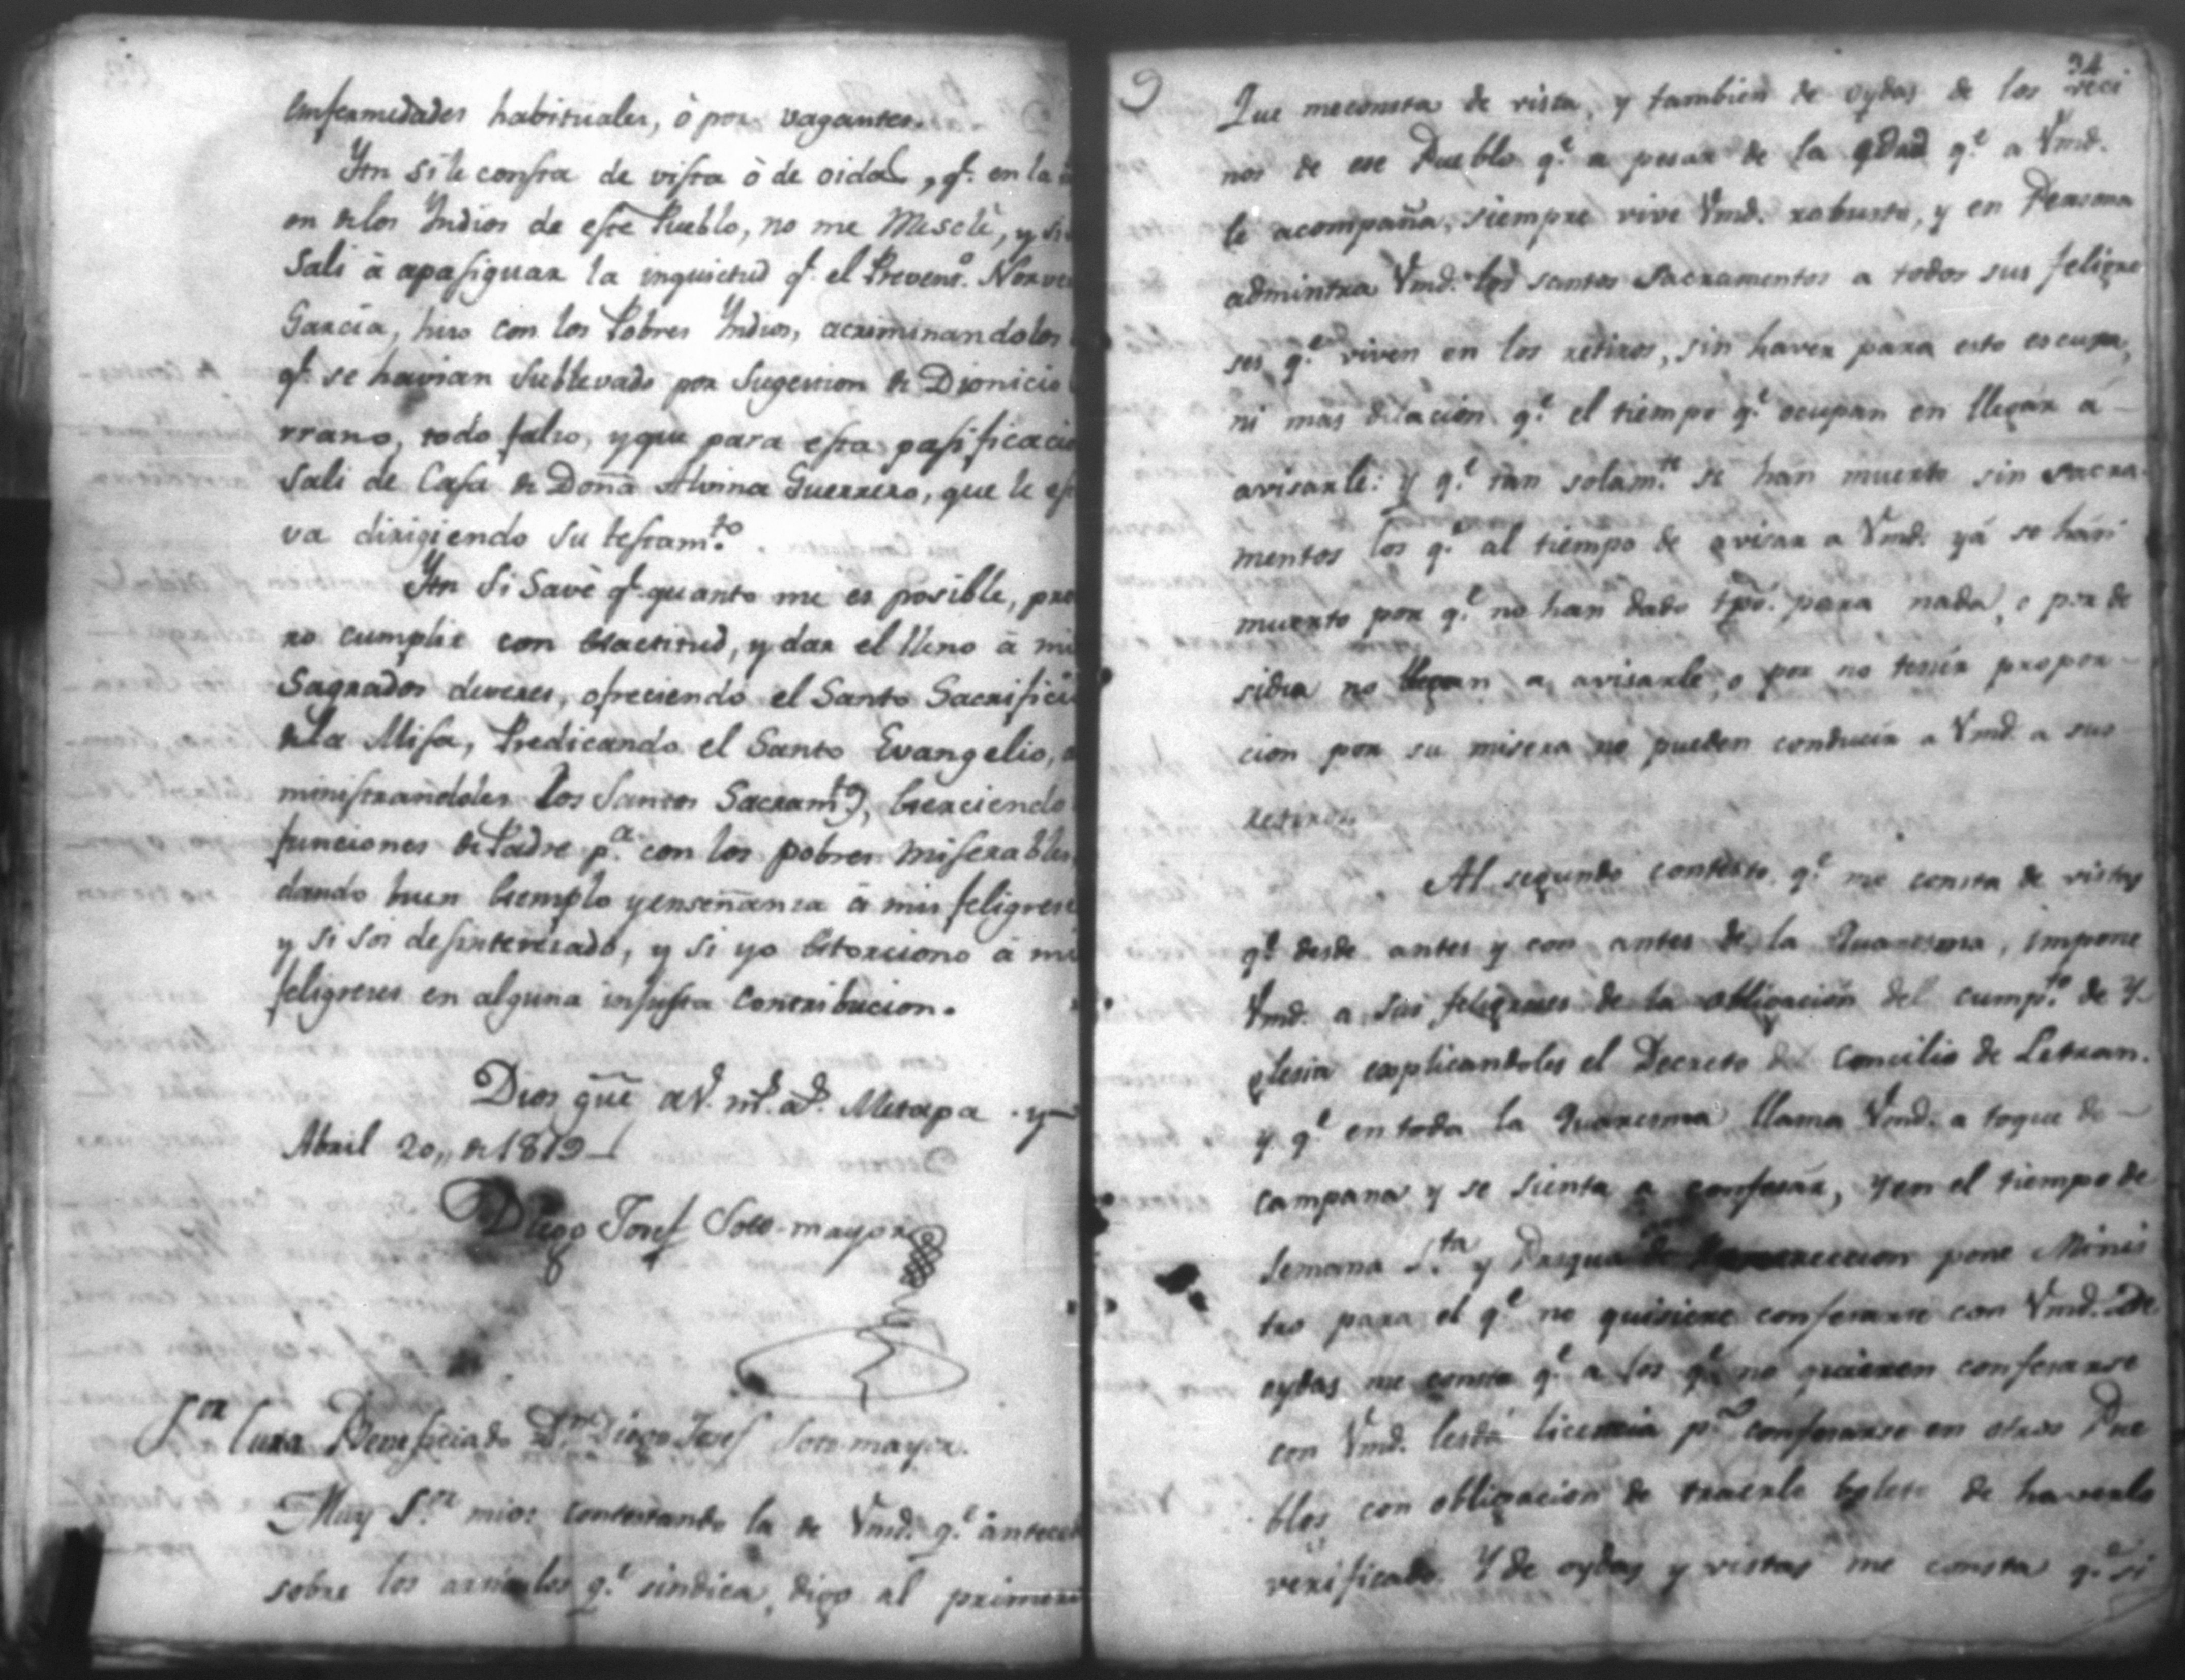 enfermedades habituales, ò por vagantes.
Ytn si le consta de vista ò de oidas, qe. en la
on de los Yndios de este Pueblo, no me Mesclè, y si
Sali à apasiguar la inquietud qe. el Prevens.o Norve
Garcia, hiso con los Pobres Yndios, acriminandolos
qe. se havian sublevado por Sugestion de Dionicio
rrano, todo falso, y que para esta pasificacio
Sali de Casa de Doña Alvina Guerrero, que le es
va dirigiendo su testam.to
Ytn Si Save qe. quanto me es posible, pro
ro cumplir con exactitud, y dar el lleno à mi
Sagrados deveres, ofreciendo el Santo Sacrifici
de la Misa, Predicando el Santo Evangelio, a
ministrandoles los Santos Sacram.tos, exerciendo
funciones de Padre p.a con los pobres miserables
dando buen exemplo y enseñansa à mis feligrese
y si soi desinteresado, y si yo extorciono à mi
feligreses en alguna injusta Contribucion.
Dios gue̅ a V. md. as. Metapa . y
Abril 20,, de 1819
Diego Josef Soto-mayor
S.or Cura Beneficiado D.n Diego Josef Soto mayor.
Muy S.or mio: contestando la de Vmd. q.e anteced
sobre los articulos q.e sindica, digo al primero
34
Que me consta de vista, y tambien de oydas de los veci
nos de ese Pueblo q.e a pesar de la edad q.e a Vmd.
le acompaña, siempre vive Vmd. robusto, y en Persona
admintra Vmd. los santos Sacramentos a todos sus feligre
ses q.e viven en los retiros, sin haver para esto escusa,
ni mas dilacion q.e el tiempo q.e ocupan en llegar á
avisarle: y q.e tan solam.te se han muerto sin sacra
mentos los q.e al tiempo de avisar a Vmd. yá se hán
muerto por q.e no han dado tpo. para nada, o por de
sidia no llegan a avisarle, o por no tenér propor-
cion por su misera no pueden conducir a Vmd. a sus
retiros.
Al segundo contesto q.e me consta de vistas
q.e desde antes y con antes de la Quaresma, impone
Vmd. a sus feligreses de la obligación del cump.to de Y-
glesia esplicandoles el Decreto del Concilio de Letran.
y q.e en toda la Quaresma llama Vmd. a toque de
campana y se sienta a confesár, y en el tiempo de
Semana S.ta y Pasqua de Resurreccion pone Minis
tro para el q.e no quisiere confesarse con Vmd. De
oydas me consta q.e a los q.e no quieren confesarse
con Vmd. les dá licencia p.a confesarse en otros Pue
blos con obligacion de traerle bolete de haverlo
verificado. Y de oydas y vistas me consta q.e si